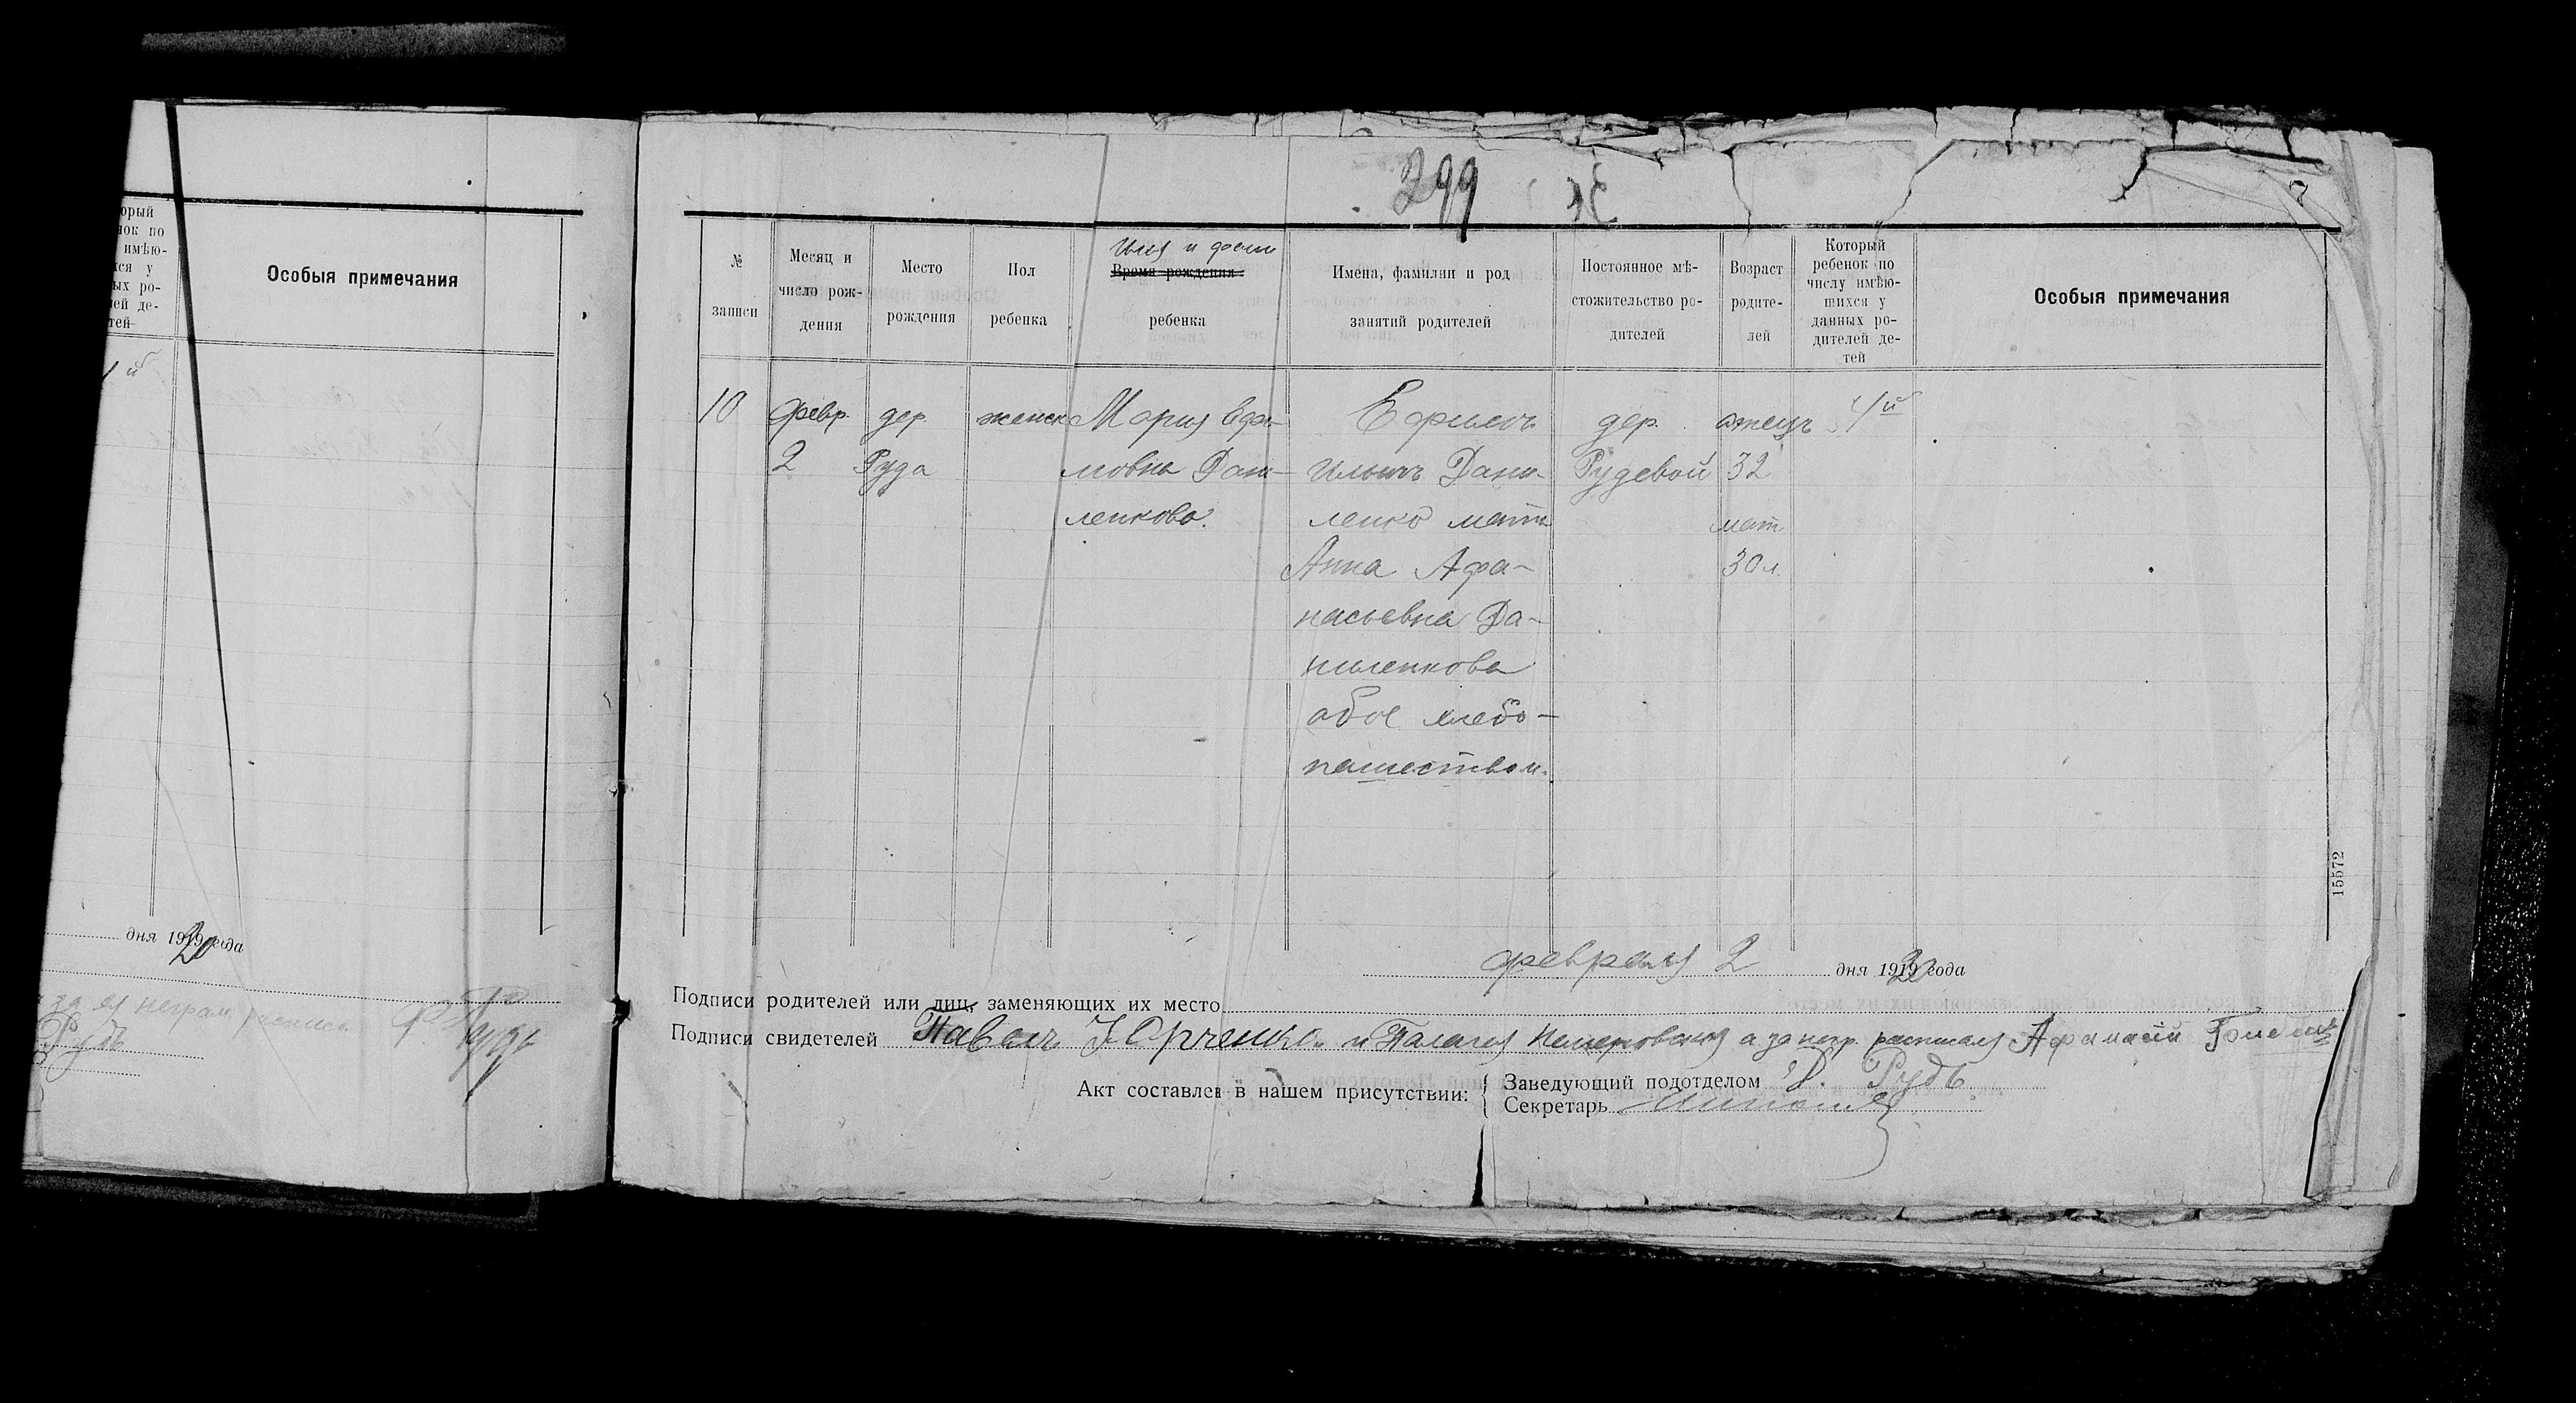 орый
нок по
имѣю-
хся у
ых ро-
лей де-
тей
Особыя примечания
1й
дня 1920 года
за ея неграм.
Рудь
299
7
№
записи
Месяц и
число рож-
дения
Место
рождения
Пол
ребенка
Имя и фами
Время рождения
ребенка
Имена, фамилии и род
занятий родителей
Постоянное мѣ-
стожительство ро-
дителей
Возраст
родите-
лей
Который
ребенок по
числу имѣю-
шихся у
данных ро-
дителей де-
тей
Особыя примечания
10
февр.
2
дер.
Руда
женск
Мария Ефи-
мовна Дани-
ленкова.
Ефимъ
Ильичъ Дани-
ленко мать
Анна Афа-
насьевна Да-
ниленкова
обое хлебо-
пашеством.
дер.
Рудевой
отецъ
32
мат
30 л.
4й
15572
февраля 2 дня 1920 года
Подписи родителей или лиц, заменяющих их место
Подписи свидетелей Павелъ Юрченко и Палагия а за негр. Афанасий
Акт составлен в нашем присутствии:
Заведующий подотделом Рудь
Секретарь